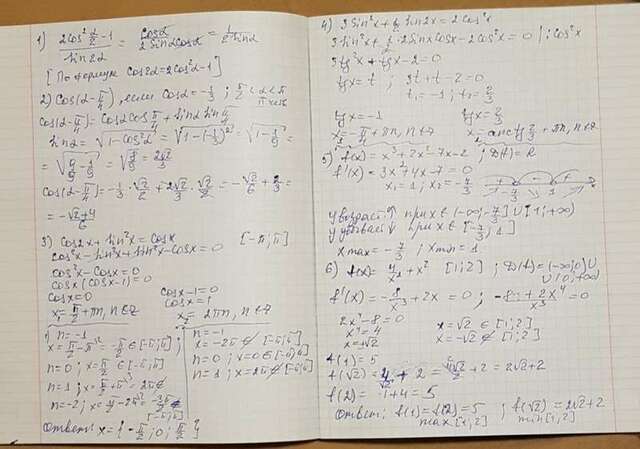 1) (2cos²(α/2)-1)/(sin2α) = cosα/(2sinαcosα) = 1/(2sinα)
[По формуле cos2α=2cos²α-1]
2) cos(α-π/4), если cosα=-1/3; π/2<α<π
II четв
cos(α-π/4)=cosαcosπ/4+sinαsinπ/4
sinα=√(1-cos²α)=√(1-(-1/3)²)=√(1-1/9)=
=√(9/9-1/9)=√(8/9)=2√2/3
cos(α-π/4)=-1/3·√2/2+2√2/3·√2/2=-√2/6+2/3=
=-√2+4/6
3) cos2x+sin²x=cosx [-π;π]
cos²x-sin²x+sin²x-cosx=0
cos²x-cosx=0
cosx(cosx-1)=0
cosx=0 cosx-1=0
cosx=1
x₁=π/2+πn, n∈Z x₂=2πn, n∈Z
1) n=-1
x=π/2-π=-π/2∈[-π;π]
n=0; x=π/2∈[-π;π]
n=1; x=π/2+π
n=-2; x=π/2-2π=-3π/2∉
[-π;π]
n=-1
x=-2π∉[-π;π]
n=0; x=0∈[-π;π]
n=1; x=2π∉[-π;π]
Ответ: x={-π/2; 0; π/2}
4) 3sin²x+½sin2x=2cos²x
3sin²x+½·2sinxcosx-2cos²x=0 |:cos²x
3tg²x+tgx-2=0
tgx=t; 3t+t-2=0
t₁=-1; t₂=2/3
tgx=-1 tgx=2/3
x₁=-π/4+πn, n∈Z x₂=arctg2/3+πn, n∈Z
5) f(x)=x³+2x²-7x-2; D(f)=R
f'(x)=3x²+4x-7=0
x₁=1; x₂=-7/3
у возраст↑ при x∈(-∞;-7/3]∪[1;+∞)
у убывает↓ при x∈[-7/3;1]
xmax=-7/3; xmin=1
6) f(x)=4/x²+x² [1;2]; D(f)=(-∞;0)∪
∪(0;+∞)
f'(x)=-8/x³+2x=0; -8+2x⁴/x³=0
2x⁴-8=0
x⁴=4
x=±√2
x=√2∈[1;2]
x=-√2∉[1;2]
f(1)=5
+2=2√2+2
f(2)=1+4=5
Ответ: f(1)=f(2)=5; f(√2)=2√2+2
max[1;2] min[1;2]